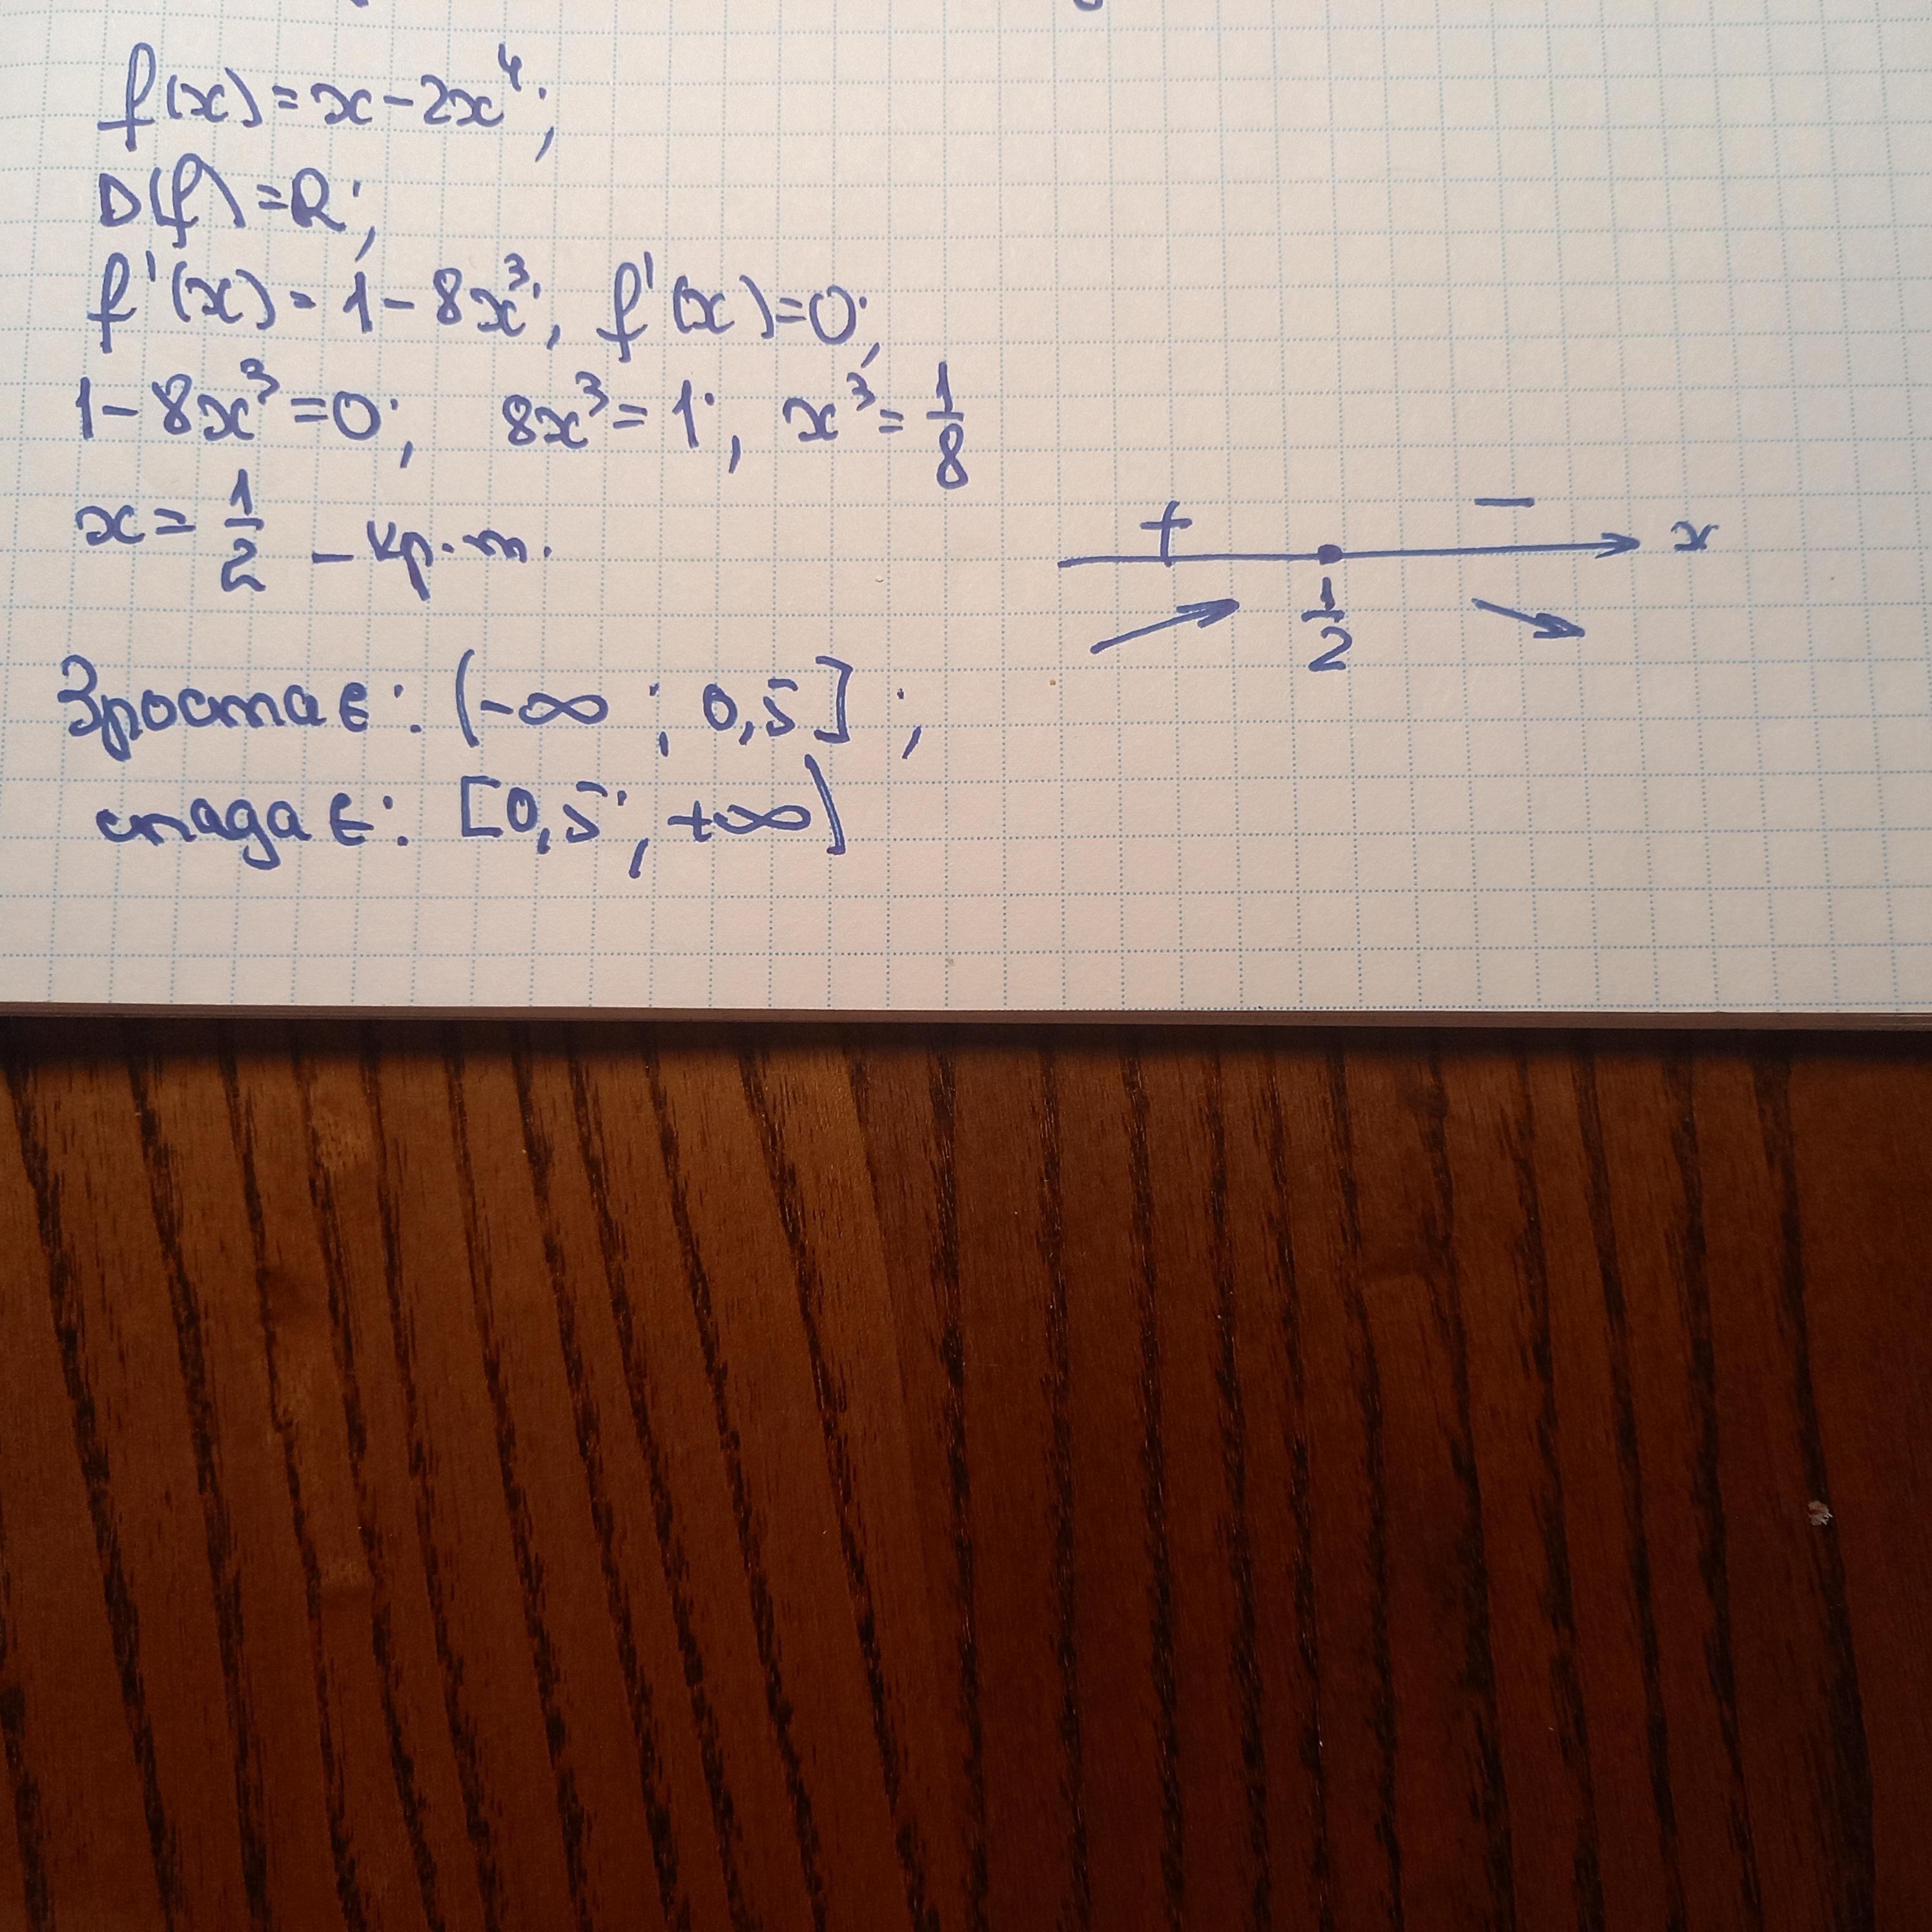 f(x)=x-2x⁴;
D(f)=R;
f'(x)=1-8x³; f'(x)=0;
1-8x³=0; 8x³=1; x³=1/8
x=1/2 - кр.т.
+ - x
1/2
Зростає: (-∞; 0,5];
спадає: [0,5; +∞)